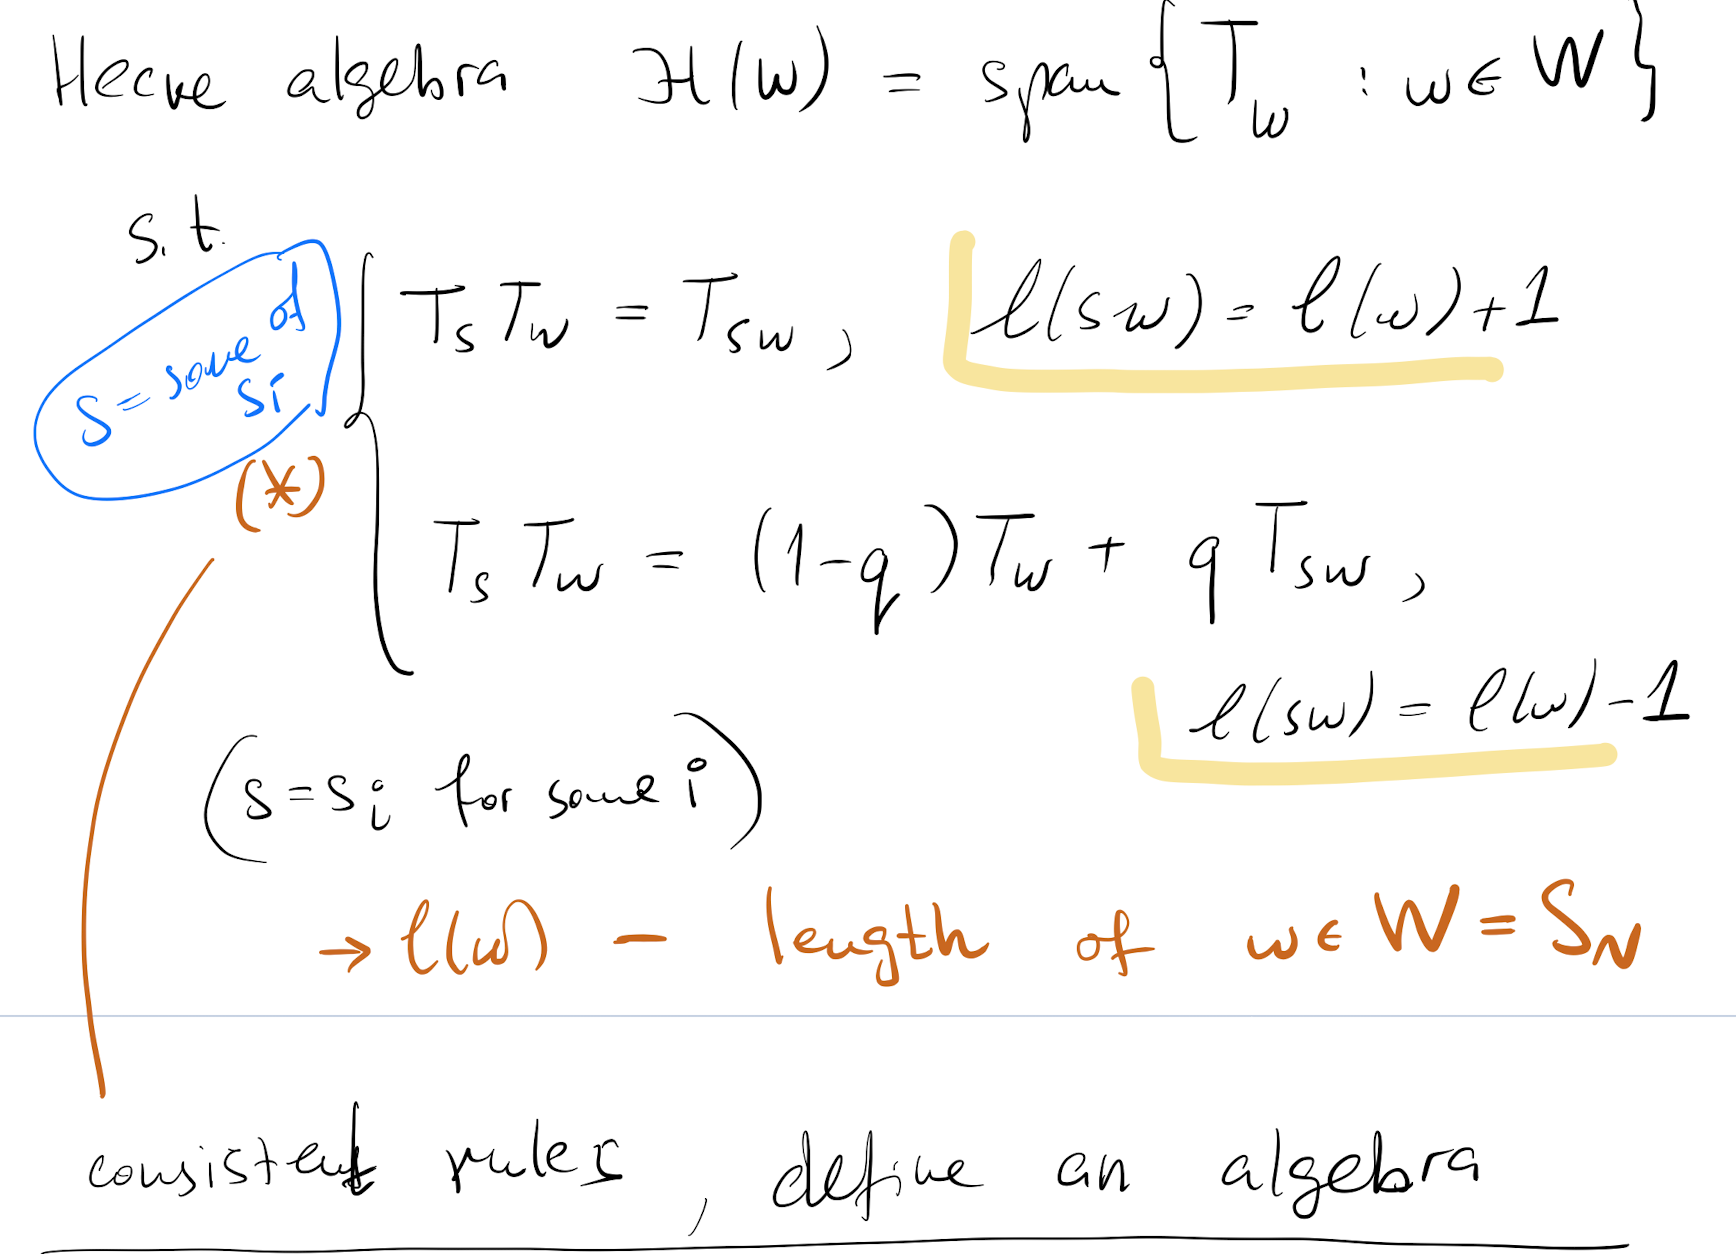 Hecke algebra ℋ(W) = span { T_w : w ∈ W }
s.t.
s = some of si
T_s T_w = T_sw , ℓ(sw) = ℓ(w) + 1
(*)
T_s T_w = (1-q) T_w + q T_sw ,
ℓ(sw) = ℓ(w) - 1
(s = s_i for some i)
→ ℓ(w) - length of w ∈ W = S_N
consistent rules , define an algebra